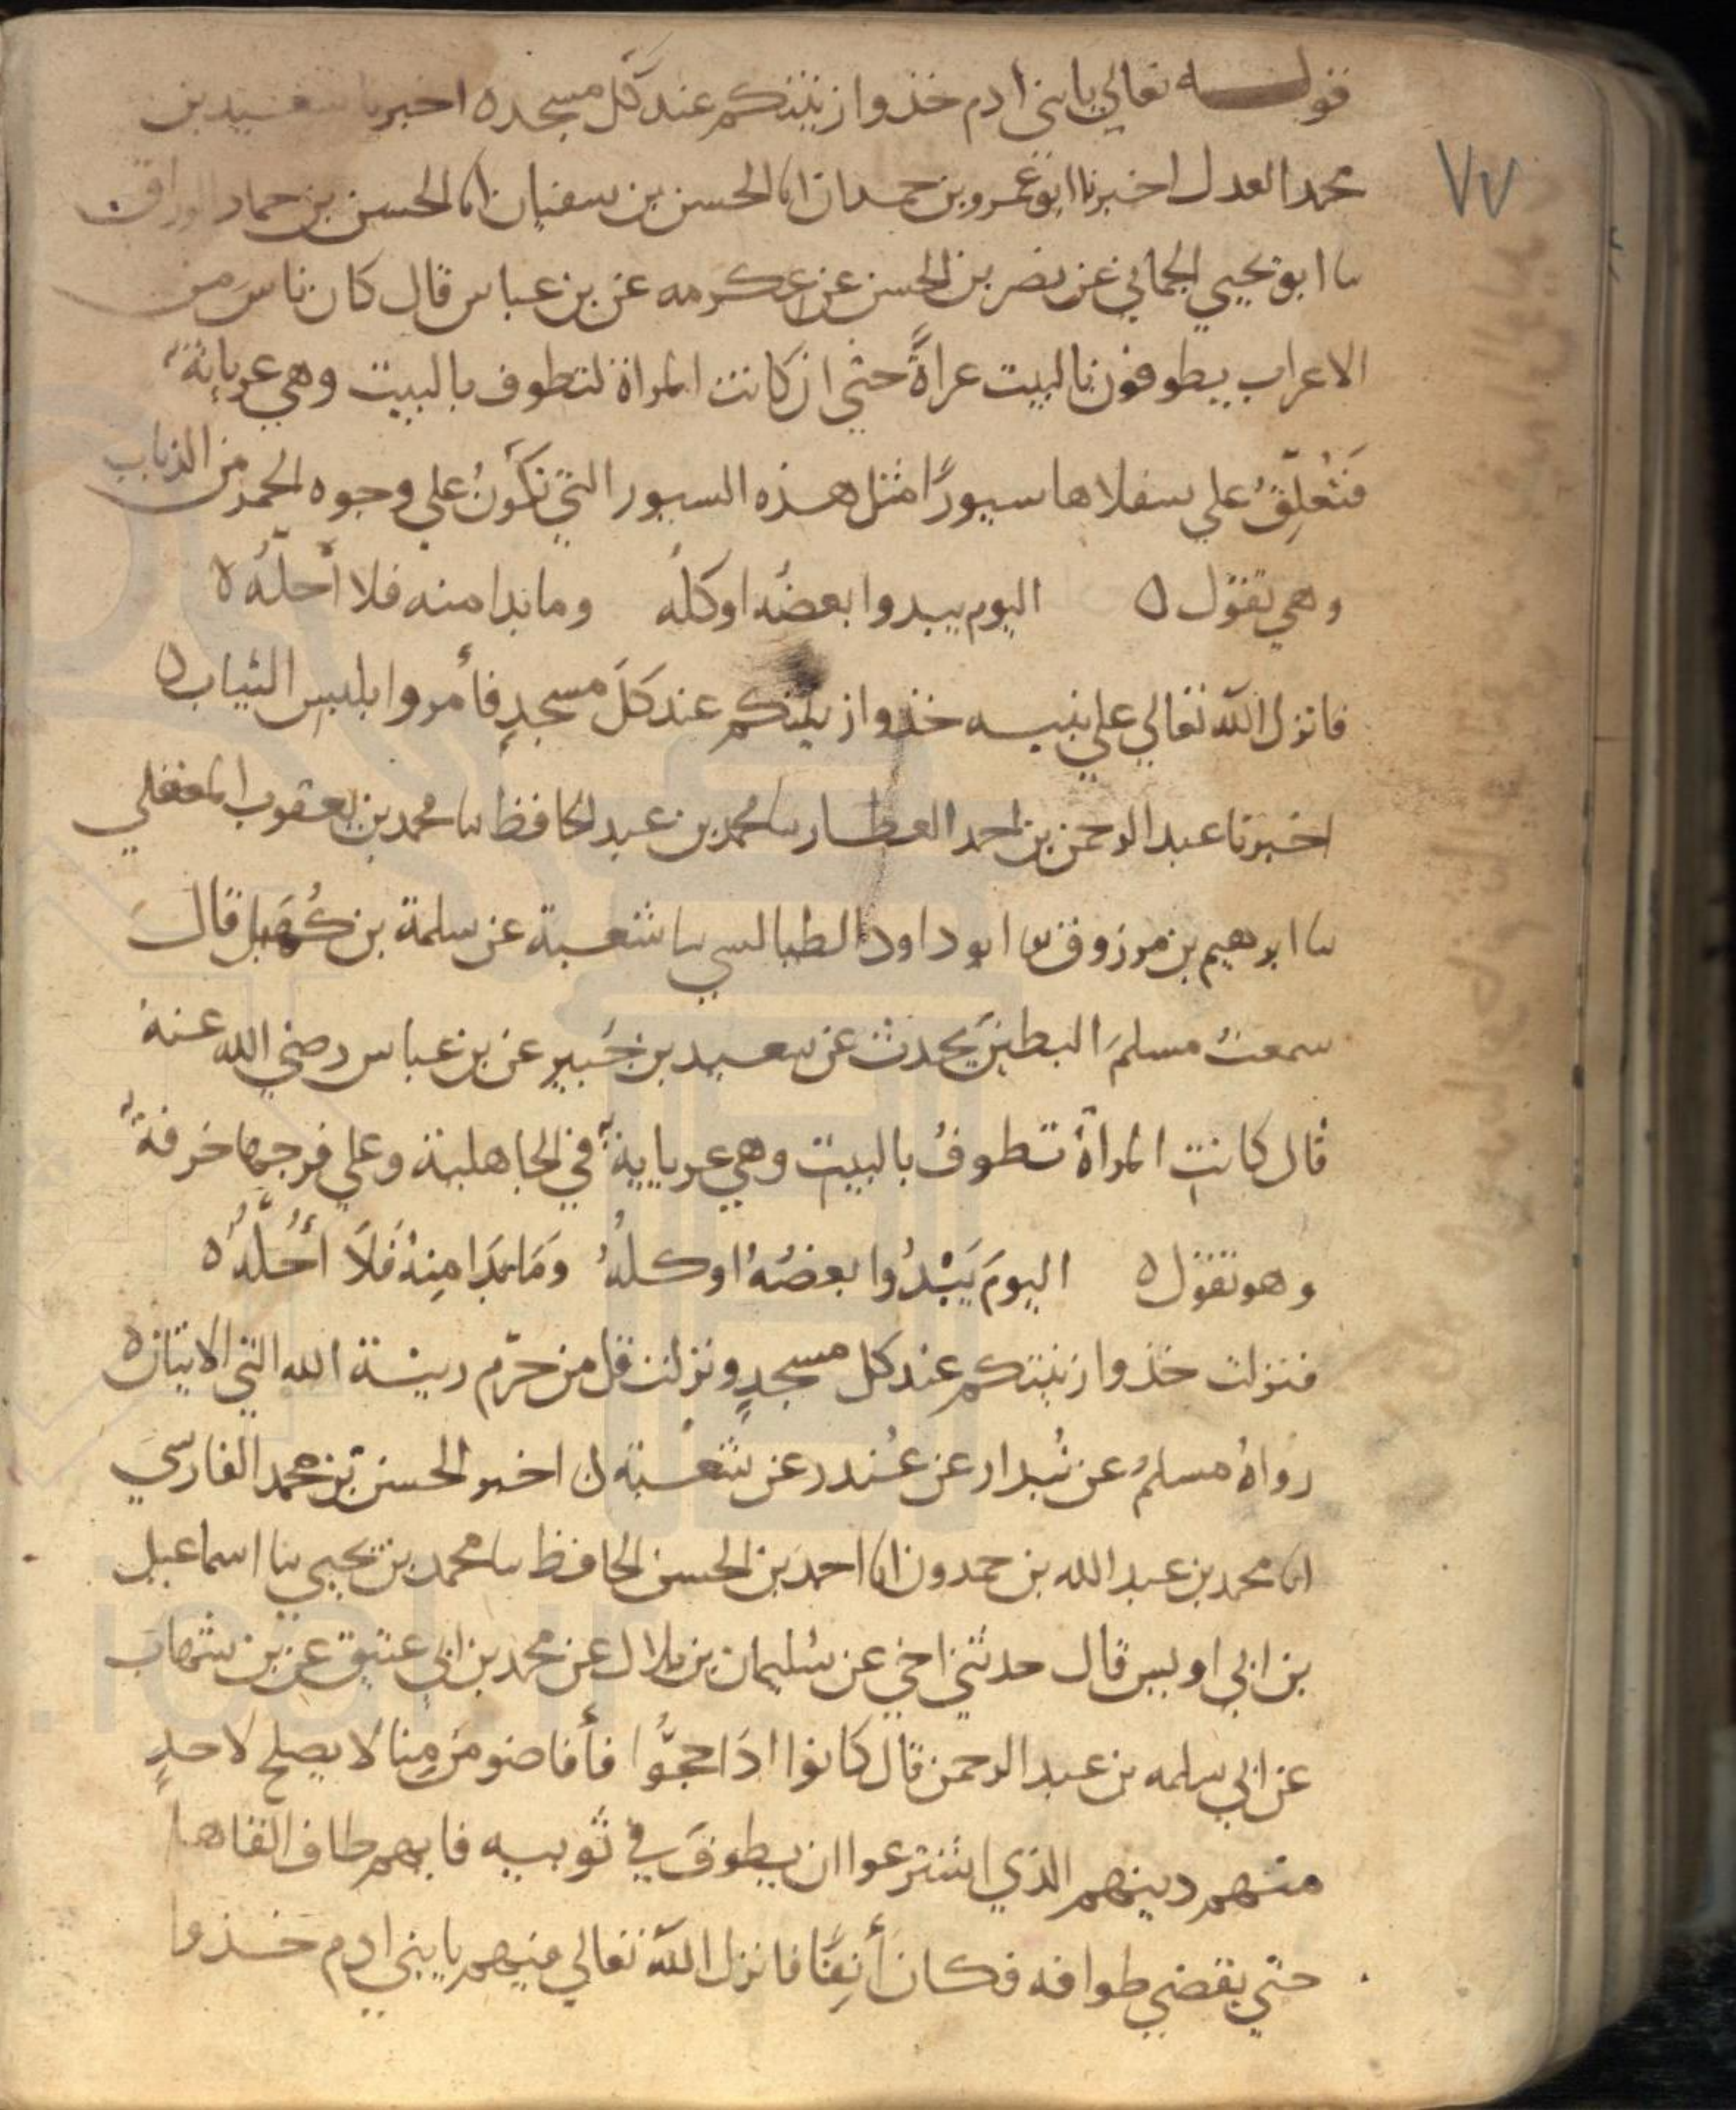 قوله تعالي يا بني ادم خذوا زينتكم عند كل مسجد ه اخبرنا سعيد بن
٧٧
محمد العدل اخبرنا ابو عمرو بن حمدان انا الحسن بن سفيان انا الحسن بن حماد الوراق
نا ابو يحيي الحماني عن نصر بن الحسن عن عكرمه عن بن عباس قال كان ناس من
الاعراب يطوفون بالبيت عراةً حتي ان كانت المراة لتطوف بالبيت وهي عريانةٌ
فتُعلّقُ علي سفلاها سيورًا مثل هذه السيور التي تكونُ علي وجوه الحمر من الذباب
وهي تقول ه اليوم يبدوا بعضُه او كلُه وما بدا منه فلا أحلّهُ ه
فانزل الله تعالي علي نبيه خذوا زينتكم عند كل مسجدٍ فأمروا بلبس الثياب ه
اخبرنا عبد الرحمن بن احمد العطار نا محمد بن عبد الحافظ نا محمد بن يعقوب المعقلي
نا ابرهيم بن مرزوق نا ابو داود الطيالسي نا شعبة عن سلمة بن كُهَيل قال
سمعتُ مسلمَ البطين يحدث عن سعيد بن جُبير عن بن عباس رضي الله عنه
قال كانتِ المراةُ تطوفُ بالبيت وهي عريانيةٌ في الجاهلية وعلي فرجها خرقةٌ
وهو تقول ه اليومَ يَبْدُوا بعضُهُ او كلهُ وَمَا بَدَا مِنْهُ فَلَا أُحُلّهُ ه
فنزلت خذوا زينتكم عند كل مسجدٍ ونزلت قل من حرّم زينة الله التي الايتان ه
رواهُ مسلمُ عن بُندار عن غُندر عن شعبة ه اخبر الحسن بن محمد الفارسي
انا محمد بن عبد الله بن حمدون انا احمد بن الحسن الحافظ نا محمد بن يحيي نا اسماعيل
بن ابي اويس قال حدثني اخي عن سُليمان بن بلال عن محمد بن ابي عتيق عن بن شهاب
عن ابي سلمه بن عبد الرحمن قال كانوا اذا حجُّوا فأفاضو من مِنا لا يصلح لاحدٍ
منهم دينهم الذي اشترعوا ان يطوفَ في ثوبيه فايهم طاف القاها
حتي يقضي طوافه فكان أنِقًا فانزل الله تعالي فيهم يا بني ادم خذوا